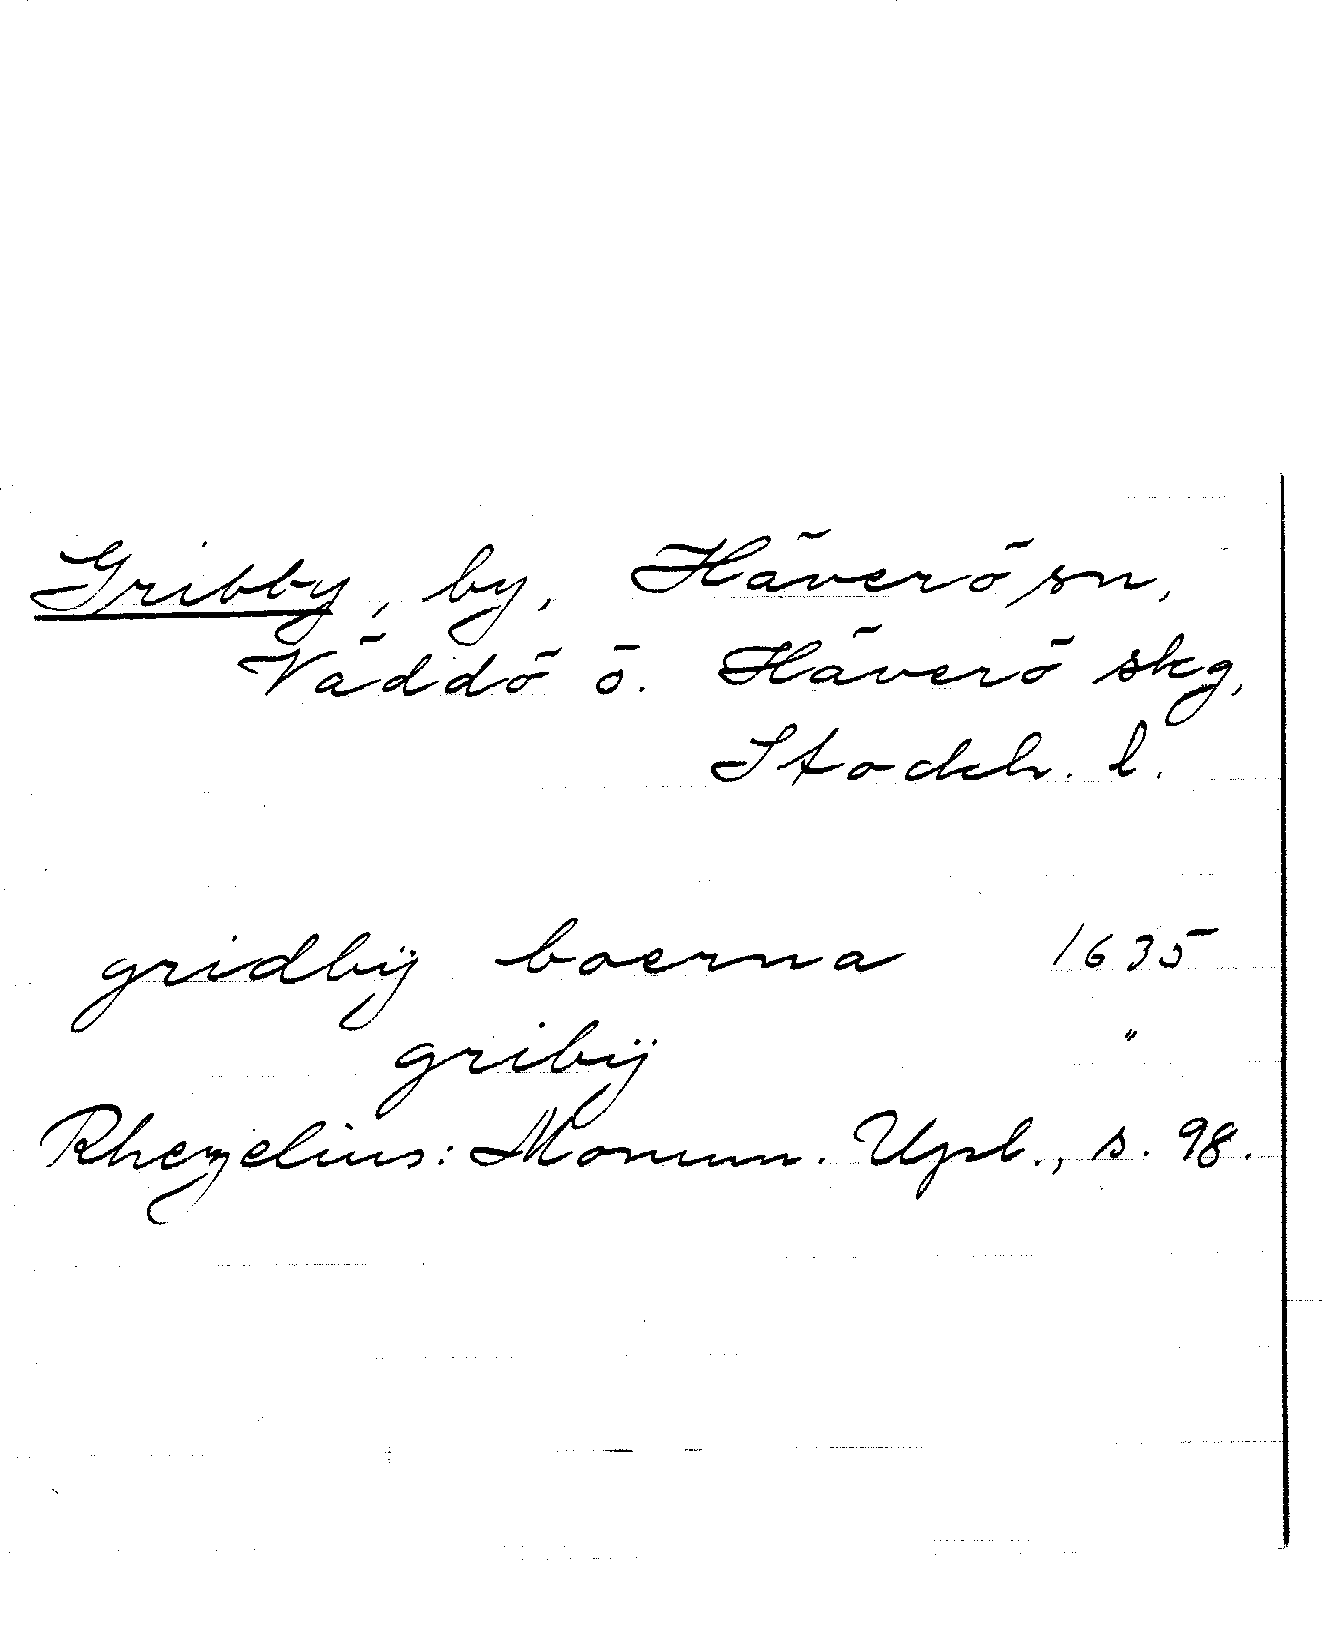 Gribby, by, Häverö sn,
Väddö ö. Häverö skg,
Stockh. l.
gridbÿ boerna 1635
gribÿ "
Rhezelius: Monum. Upl., s. 98.